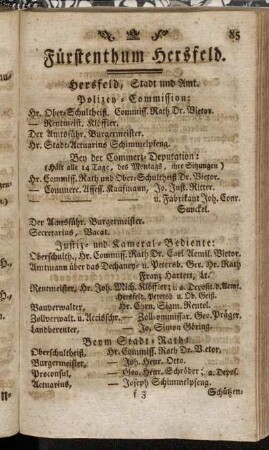 85
Fürstenthum Hersfeld.
Hersfeld, Stadt und Amt.
Polizey-Commission:
Hr. Ober-Schultheiß, Commiss. Rath Dr. Vietor.
— Rentmeist. Klöffler.
Der Amtsführ. Burgermeister.
Hr. Stadt-Actuarius Schimmelpfeng.
Bey der Commerz-Deputation:
(Hält alle 14 Tage, des Montags, ihre Sitzungen)
Hr. Commiss. Rath und Ober-Schultheiß Dr. Vietor.
— Commerc. Assess. Kaufmann, Jo. Just. Ritter.
— u. Fabrikant Joh. Conr.
Der Amtsführ. Burgermeister.
Secretarius, Vacat.
Justiz- und Kameral-Bediente:
Oberschulth, Hr. Commiss. Rath Dr. Carl Aemil. Vietor.
Amtmann über das Dechaney- u. Petersb. Ger. Hr. Rath
Franz Hartert, st.
Rentmeister, Hr. Joh. Mich. Klöffler; u. a. Deposit. d. Aemt.
Hersfeld, Petersb. u. Ob. Geiß.
Bauverwalter, Hr. Chm. Sigm. Rentel.
Zollverwalt. u. Accisschr. — Zoll-Commissar. Geo. Präger.
Landberenter, — Jo. Simon Göring.
Beym Stadt-Rath:
Oberschultheiß, Hr. Commiss. Rath Dr. Vietor.
Burgermeister, — Joh. Henr. Otto.
Proconsul, — Geo. Henr. Schröder; a. Depos.
Actuarius, — Joseph Schimmelpfeng.
f 3 Schützen-